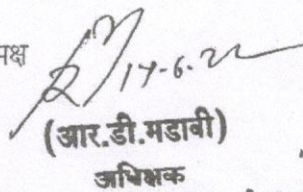 मक्ष
17-6-22
(आर.डी.मडावी)
अधिक्षक